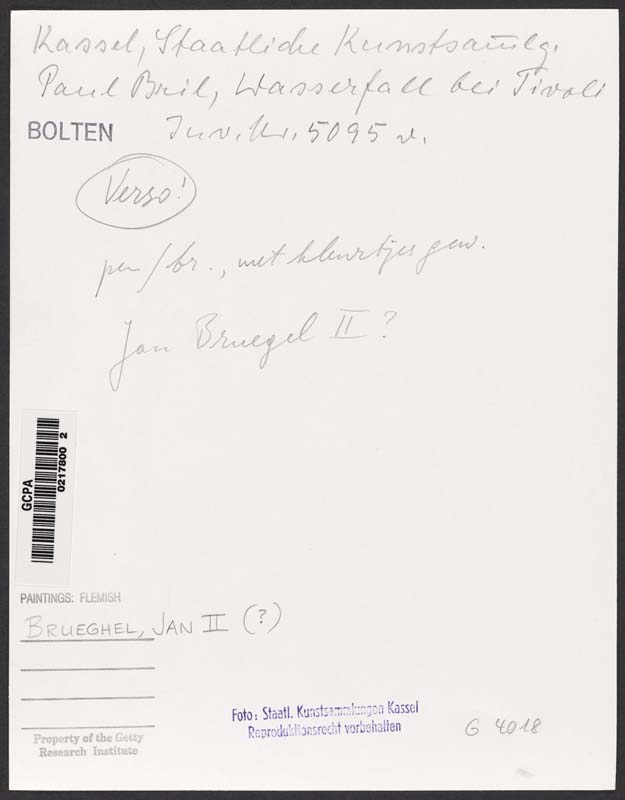 Kassel, Staatliche Kunstsam̄lg.
Paul Bril, Wasserfall bei Tivoli
BOLTEN Inv. Nr. 5095 v.
Verso!
pen / br., met kleurtjes gew.
Jan Bruegel II ?
GCPA
0217800 2
PAINTINGS: FLEMISH
BRUEGHEL, JAN II (?)
Property of the Getty
Research Institute
Foto: Staatl. Kunstsammlungen Kassel
Reproduktionsrecht vorbehalten
G 4018